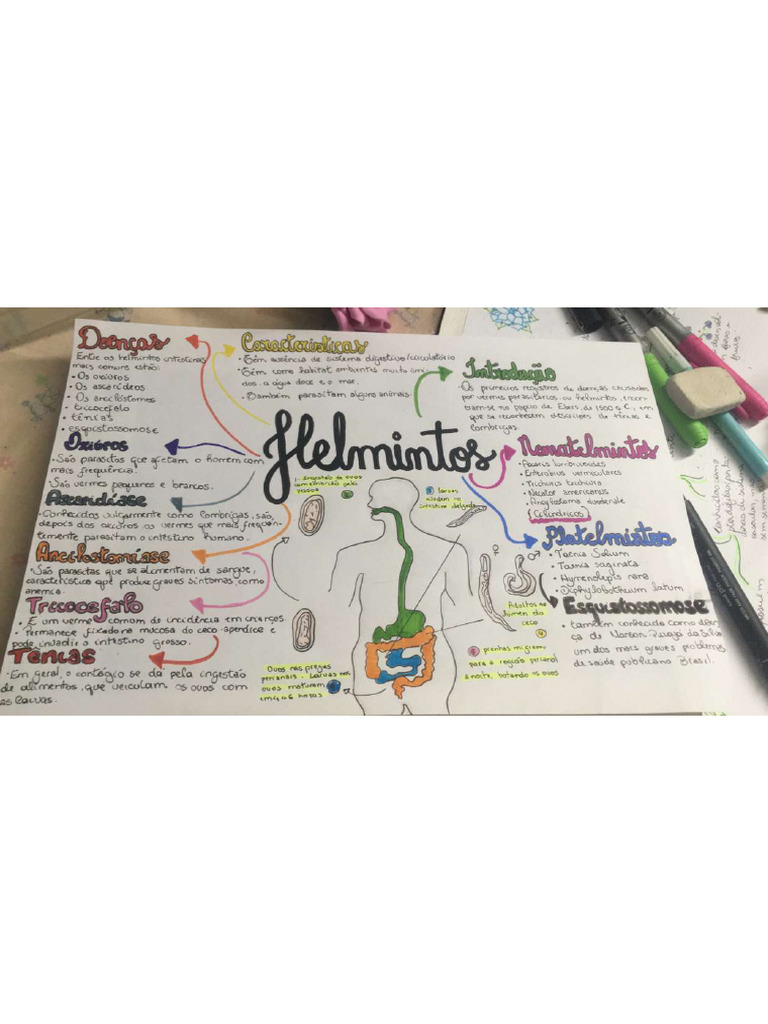 Helmintos
Doenças
Entre os helmintos intestinais
mais comuns estão:
• Os oxiúros
• Os ascarídeos
• Os ancilóstomos
• tricocefalo
• tênias
• esquistossomose
Oxiúros
• São parasitas que afetam o homem com
mais frequência.
São vermes pequenos e brancos.
Ascaridíase
Conhecidos vulgarmente como lombrigas, são,
depois dos oxiúros os vermes que mais frequen-
temente parasitam o intestino humano.
Ancilostomíase
• São parasitas que se alimentam de sangue,
característica que produz graves sintomas, como
anemia.
Tricocefalo
• É um verme comum de incidência em crianças.
Permanece fixado na mucosa do ceco-apendice e
pode invadir o intestino grosso.
Tênias
• Em geral, o contágio se dá pela ingestão
de alimentos, que veiculam os ovos com
as larvas.
Características
• Têm ausência de sistema digestivo/circulatório
• Têm como habitat ambientes muito úmi
dos. a água doce e o mar.
• Também parasitam alguns animais.
Introdução
• Os primeiros registros de doenças causadas
por vermes parasitários ou helmintos, encon
tram-se no papiro de Ebers, de 1500 a.C, em
que se reconhecem descrições de tênias e
lombrigas.
Nematelmintos
• Ascaris lumbricoides
• Enterobius vermiculares
• Trichuris trichiura
• Necator americanus
• Ancylostoma duodenale
(Cilíndricos)
Platelmintos
• Taenia Solium
• Taenia saginata
• Hymenolepis nana
• Diphyllobothrium latum
Esquistossomose
• também conhecido como doen
ça de
um dos mais graves problemas
de saúde publica no Brasil.
1. Ingestão de ovos
pela
pessoa
larvas
no
intestino delgado
♀ ♂
Adultos no
lúmen do
ceco
4
prenhas migram
para a região perianal
à noite, botando os ovos
Ovos nas pregas
perianais. Larvas nos
ovos maturam
em 4 a 6 horas